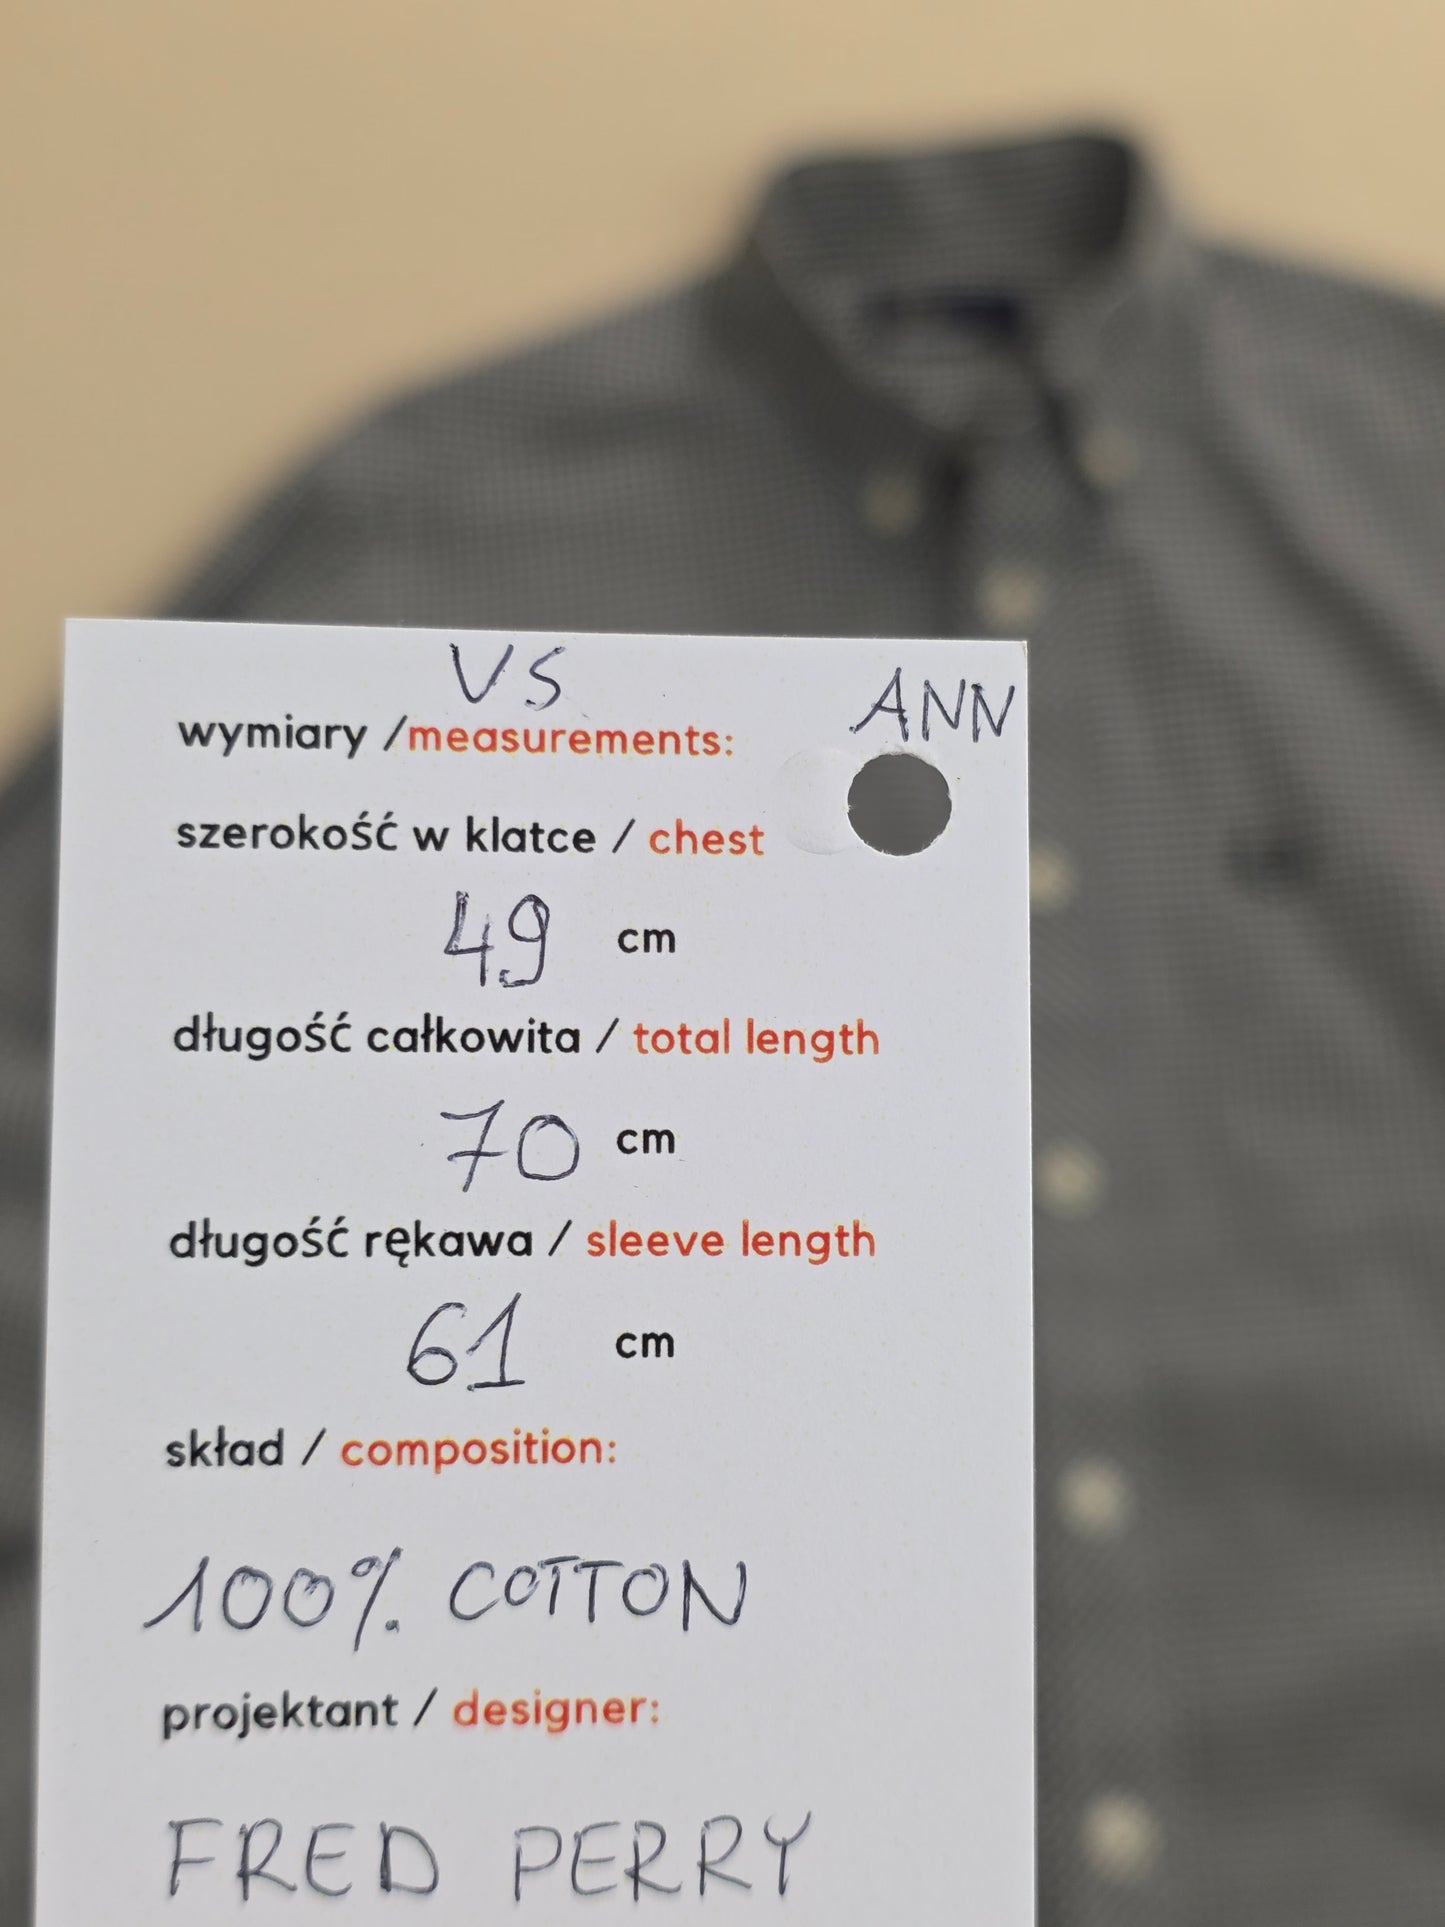 VS
ANN
wymiary /measurements:
szerokość w klatce / chest
49 cm
długość całkowita / total length
70 cm
długość rękawa / sleeve length
61 cm
skład / composition:
100% COTTON
projektant / designer:
FRED PERRY